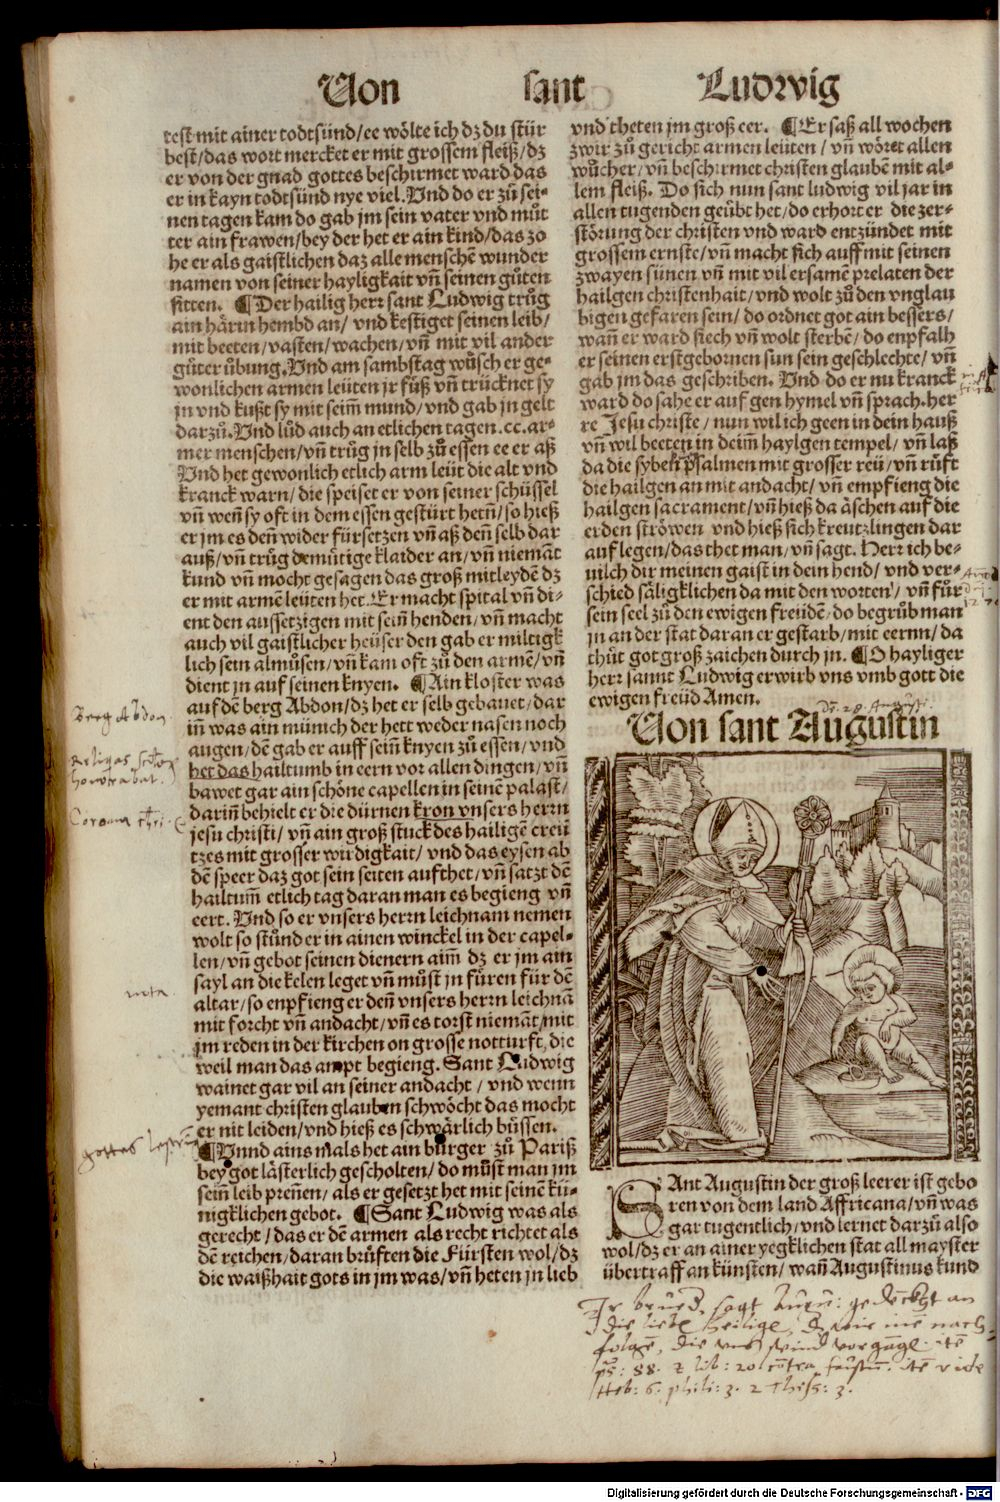 Von sant Ludwig
test mit ainer todtsünd/ee wölte ich dz du stür
best/das wort mercket er mit grossem fleiß/dz
er von der gnad gottes beschirmet ward das
er in kayn todtsünd nye viel. Vnd do er zů sei⸗
nen tagen kam do gab jm sein vater vnd můt
ter ain frawen/bey der het er ain kind/das zo
he er als gaistlichen daz alle menschē wunder
namen von seiner hayligkait vñ seinen gůten
sitten. ¶Der hailig herr sant Ludwig trůg
ain härin hembd an/ vnd kestiget seinen leib/
mit beeten/vasten/wachen/vñ mit vil ander
gůter übung. Vnd am sambstag wůsch er ge⸗
wonlichen armen leüten jr füß vñ trücknet sy
jn vnd kußt sy mit seim̄ mund/vnd gab jn gelt
darzů. Vnd lůd auch an etlichen tagen .cc. ar⸗
mer menschen/vñ trůg jn selb zů essen ee er aß
Vnd het gewonlich etlich arm leüt die alt vnd
kranck warn/die speiset er von seiner schüssel
vñ weñ sy oft in dem essen gestürt hetñ/so hieß
er jm es deñ wider fürsetzen vñ aß deñ selb dar
auß/vñ trůg demütige klaider an/vñ niemāt
kund vñ mocht gesagen das groß mitleydē dz
er mit armē leüten het. Er macht spital vñ di⸗
ent den aussetzigen mit seiñ henden/vñ macht
auch vil gaistlicher heüser den gab er miltigk
lich sein almůsen/vñ kam oft zů den armē/vñ
dient jn auf seinen knyen. ¶Ain kloster was
auf dē berg Abdon/dz het er selb gebauet/dar
iñ was ain münich der hett weder nasen noch
augen/dē gab er auff seiñ knyen zů essen/vnd
het das hailtumb in eern vor allen dingen/vñ
bawet gar ain schöne capellen in seinē palast/
dariñ behielt er die dürnen kron vnsers herrn
jesu christi/vñ ain groß stuck des hailigē creü
tzes mit grosser wirdigkait/vnd das eysen ab
dē speer daz got sein seiten aufthet/vñ satzt dē
hailtum̄ etlich tag daran man es begieng vñ
eert. Vnd so er vnsers herrn leichnam nemen
wolt so stůnd er in ainen winckel in der capel⸗
len/vñ gebot seinen dienern aim̄ dz er jm ain
sayl an die kelen leget vñ můst jn füren für dē
altar/so enpfieng er deñ vnsers herrn leichnā
mit forcht vñ andacht/vñ es torst niemāt mit
jm reden in der kirchen on grosse notturft/die
weil man das ampt begieng. Sant Ludwig
wainet gar vil an seiner andacht/ vnd wenn
yemant christen glauben schwöcht das mocht
er nit leiden/vnd hieß es schwärlich büssen.
¶Vnnd ains mals het ain burger zů Pariß
bey got lästerlich gescholten/do můst man jm
seiñ leib preñen/als er gesetzt het mit seinē kü⸗
nigklichen gebot. ¶Sant Ludwig was als
gerecht/das er dē armen als recht richtet als
dē reichen/daran brüften die Fürsten wol/dz
die waißhait gots in jm was/vñ heten jn lieb
vnd theten jm groß eer. ¶Er saß all wochen
zwir zů gericht armen leüten/vñ wöret allen
wůcher/vñ beschirmet christen glaubē mit al⸗
lem fleiß. Do sich nun sant ludwig vil jar in
allen tugenden geübt het/do erhort er die zer⸗
störung der christen vnd ward entzündet mit
grossem ernste/vñ macht sich auff mit seinen
zwayen sünen vñ mit vil ersamē prelaten der
hailgen christenhait/vnd wolt zů den vnglau
bigen gefaren sein/do ordnet got ain bessers/
wañ er ward siech vñ wolt sterbē/do enpfalh
er seinen erstgebornen sun sein geschlechte/vñ
gab jm das geschriben. Vnd do er nu kranck
ward do sahe er auf gen hymel vñ sprach. her
re Jesu christe/nun wil ich geen in dein hauß
vñ wil beeten in deim̄ haylgen tempel/vñ laß
da die syben psalmen mit grosser reü/vñ růft
die hailgen an mit andacht/vñ empfieng die
hailgen sacrament/vñ hieß da äschen auf die
erden ströwen vnd hieß sich kreutzlingen dar
auf legen/das thet man/vñ sagt. Herr ich be⸗
uilch dir meinen gaist in dein hend/vnd ver⸗
schied säligklichen da mit den worten/vñ für
sein seel zů den ewigen freüdē/do begrůb man
jn an der stat daran er gestarb/mit eernn/da
thůt got groß zaichen durch jn. ¶O hayliger
herr sannt Ludwig erwirb vns vmb gott die
ewigen freüd Amen.
Von sant Augustin
SAnt Augustin der groß leerer ist gebo
ren von dem land Affricana/vñ was
gar tugentlich/vnd lernet darzů also
wol/dz er an ainer yegklichen stat all mayster
übertraff an künsten/wañ Augustinus kund
Berg Abdon.
Corona chri.
nota.
die liebe heilige
Heb: 6. phili: 3. 2 Thess: 3.
Digitalisierung gefördert durch die Deutsche Forschungsgemeinschaft - DFG